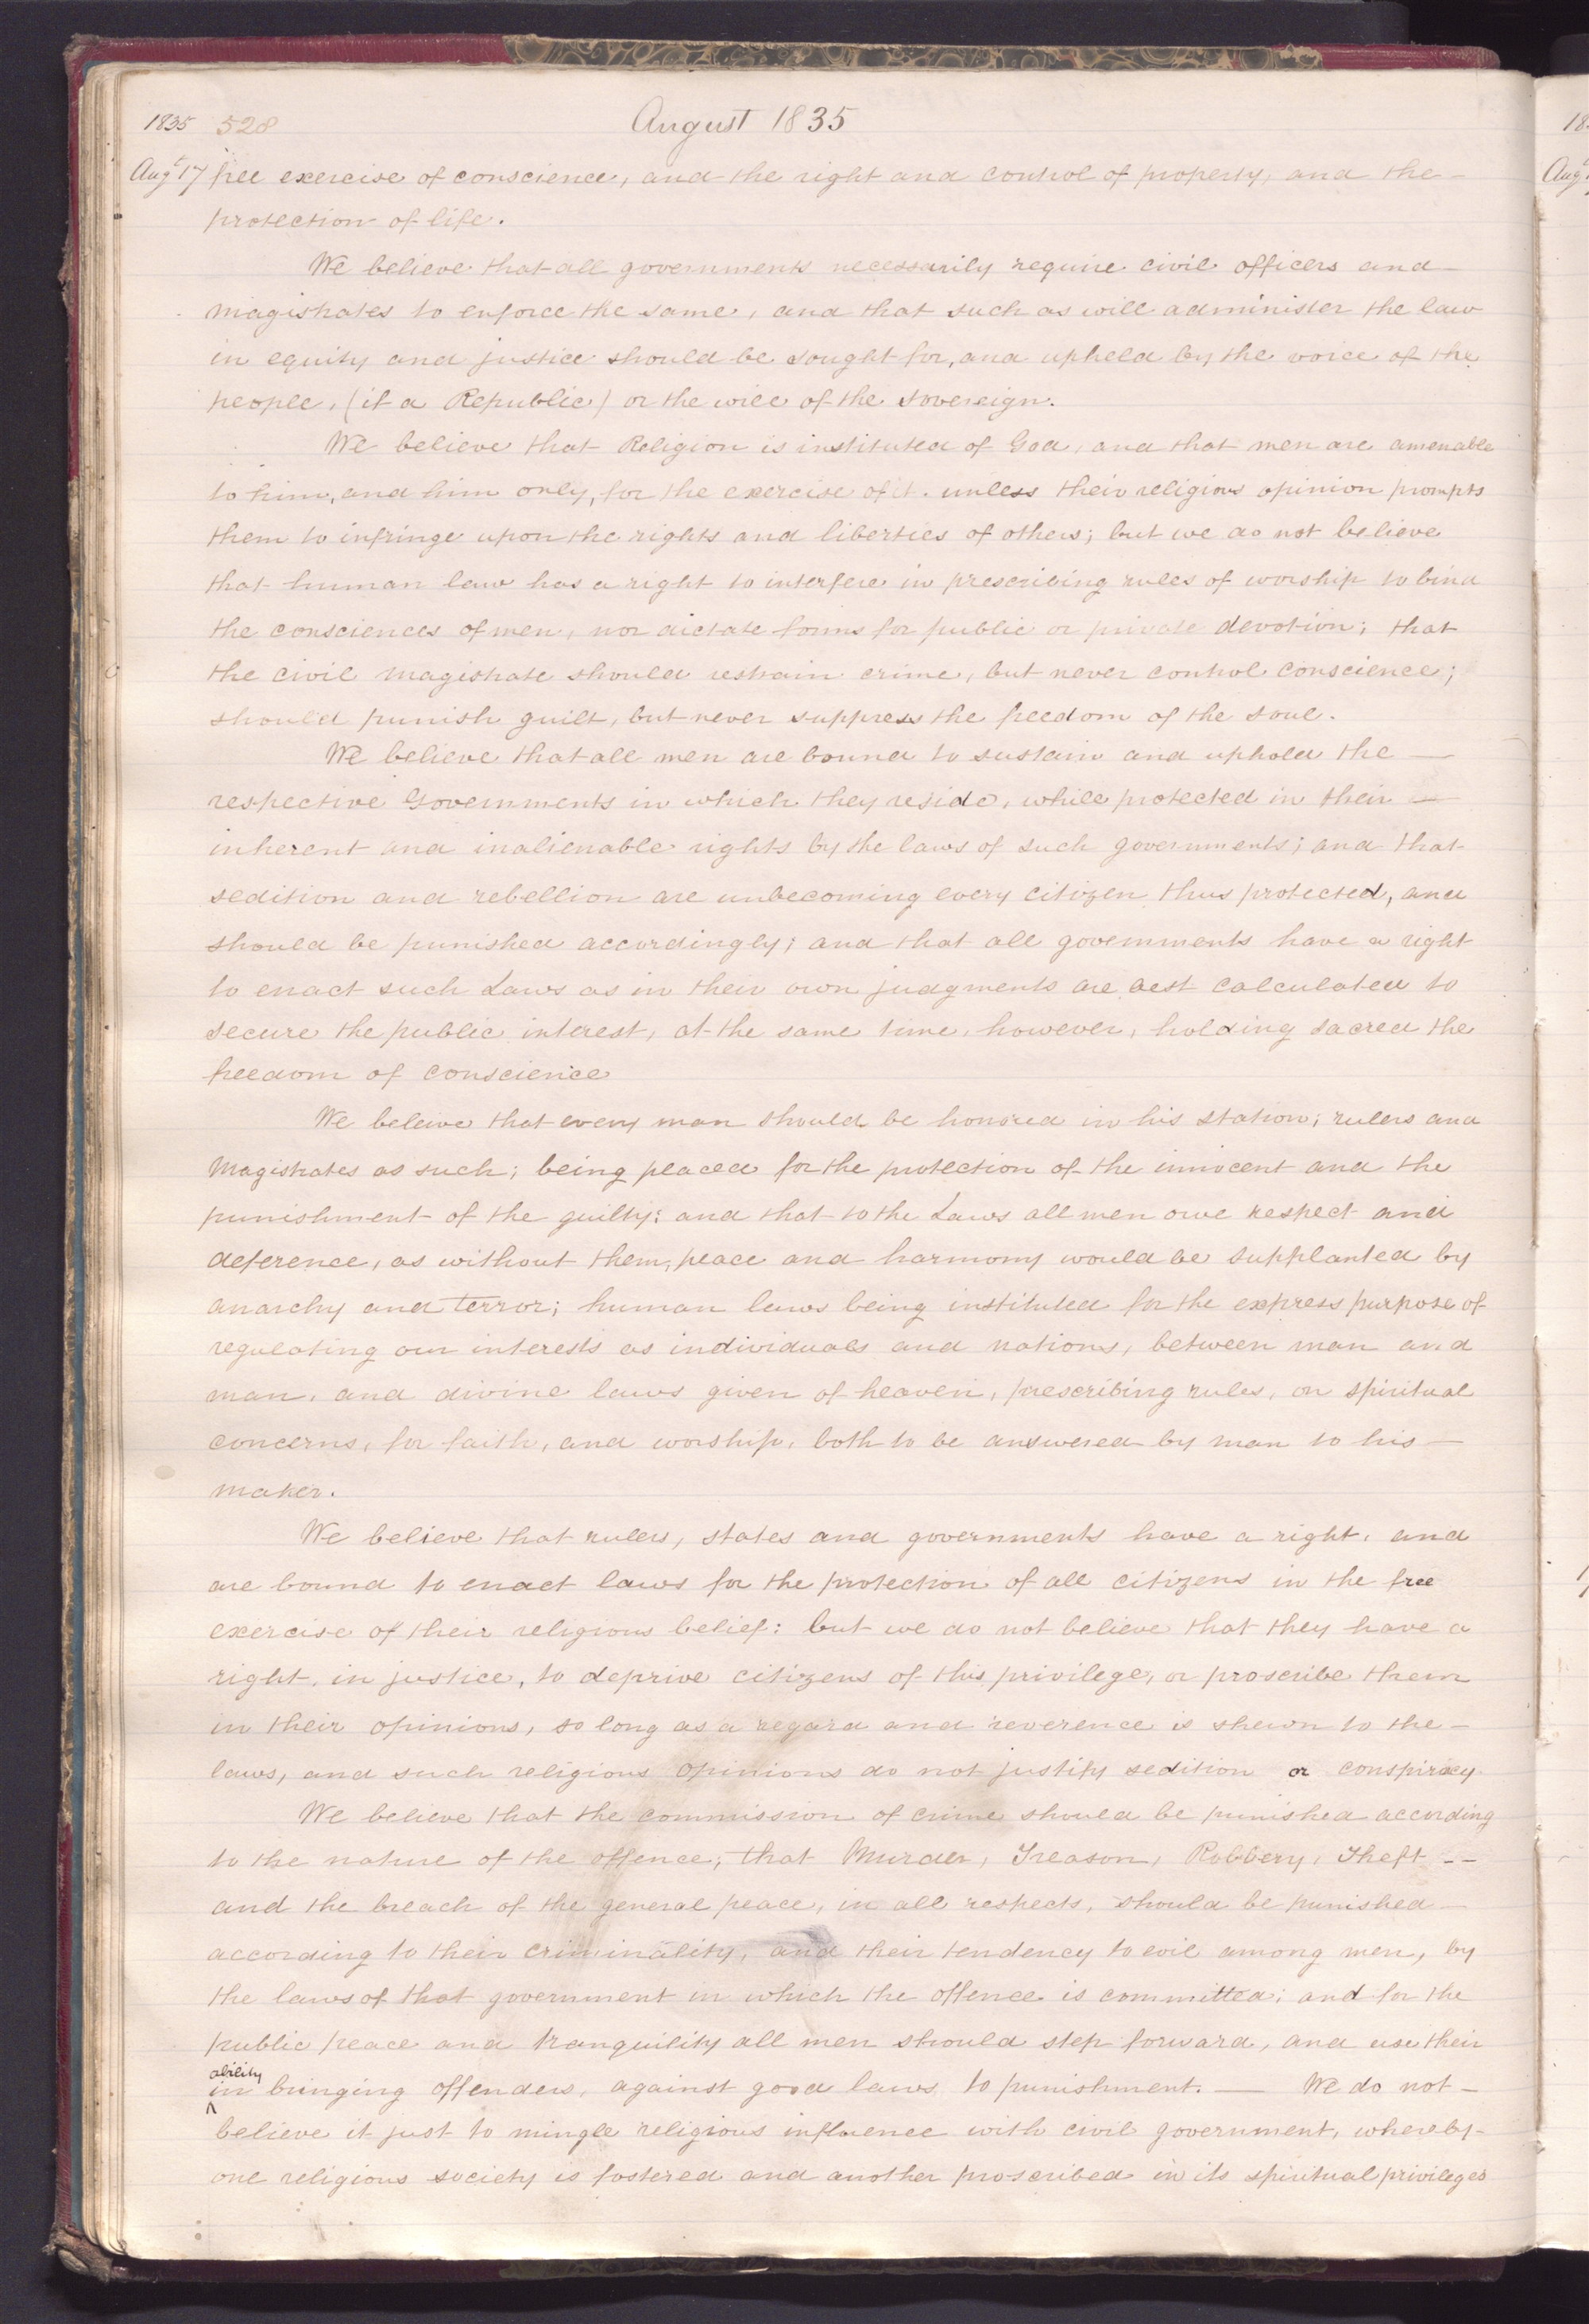 1835 528 August 1835
Augt 17 free exercise of conscience, and the right and control of property, and the—
protection of life.
We believe that all governments necessarily require civil officers and—
magistrates to enforce the same, and that such as will administer the law
in equity and justice should be sought for, and upheld by the voice of the
people, (if a Republic) or the will of the sovereign.
We believe that Religion is instituted of God, and that men are amenable
to him, and him only, for the exercise of it. unless their religious opinion prompts
them to infringe upon the rights and liberties of others; but we do not believe
that human law has a right to interfere in prescribing rules of worship to bind
the consciences of men, nor dictate forms for public or private devotion; that
the civil magistrate should restrain crime, but never control conscience;
should punish guilt, but never suppress the freedom of the soul.
We believe that all men are bound to sustain and uphold the —
respective Governments in which they reside, while protected in their —
inherent and inalienable rights by the laws of such governments; and that
sedition and rebellion are unbecoming every citizen thus protected, and
should be punished accordingly; and that all governments have a right
to enact such Laws as in their own judgments are best calculated to
secure the public interest, at the same time, however, holding sacred the
freedom of conscience
We beleive that every man should be honored in his station; rulers and
Magistrates as such; being placed for the protection of the innocent and the
punishment of the guilty; and that to the Laws all men owe respect and
deference, as without them, peace and harmony would be supplanted by
anarchy and terror; human laws being instituted for the express purpose of
regulating our interests as individuals and nations, between man and
man, and divine laws given of heaven, prescribing rules, on spiritual
concerns, for faith, and worship, both to be answered by man to his —
maker.
We believe that rulers, states and governments have a right, and
are bound to enact laws for the protection of all citizens in the free
exercise of their religious belief: but we do not believe that they have a
right, in justice, to deprive citizens of this privilege, or proscribe them
in their opinions, so long as a regard and reverence is shewn to the—
laws, and such religious opinions do not justify sedition or conspiracy.
We believe that the commission of crime should be punished according
to the nature of the offence; that Murder, Treason, Robbery, Theft --
and the breach of the general peace, in all respects, should be punished—
according to their criminality, and their tendency to evil among men, by
the laws of that government in which the offence is committed; and for the
public peace and tranquility all men should step forward, and use their
ability
^in bringing offenders, against good laws to punishment. — We do not—
believe it just to mingle religious influence with civil government, whereby-
one religious society is fostered and another proscribed in its spiritual privileges